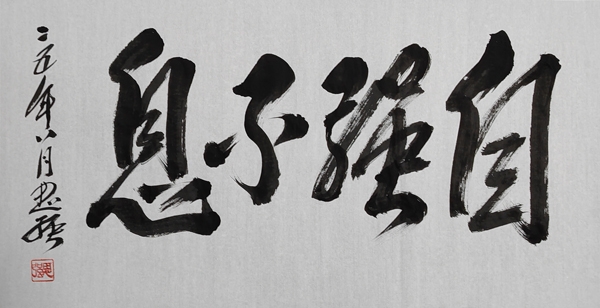 自强不息
二〇一五年八月